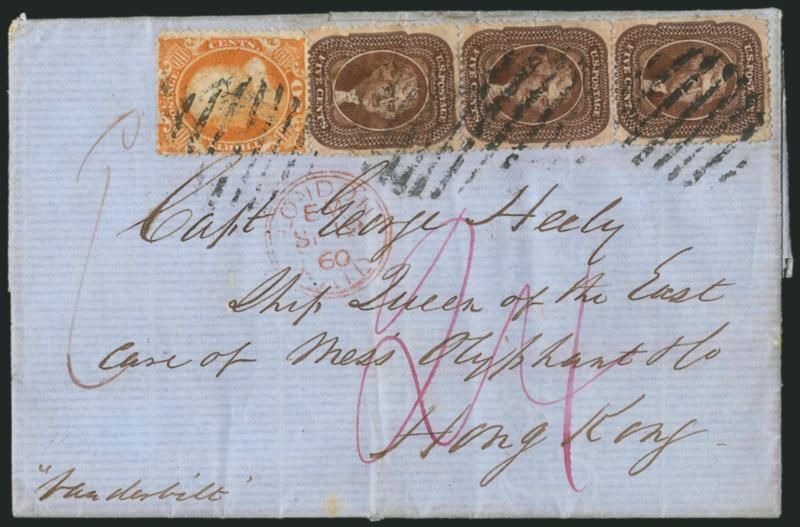 CENTS.
POSTAGE
THIRTY
U.S. POSTAGE
FIVE CENTS
U.S. POSTAGE
FIVE CENTS
U.S. POSTAGE
FIVE CENTS
LONDON
60
PAID
Capt George Heely
Ship Queen of the East
care of Mess Olyphant & Co
Hong Kong
24
"Vanderbilt"